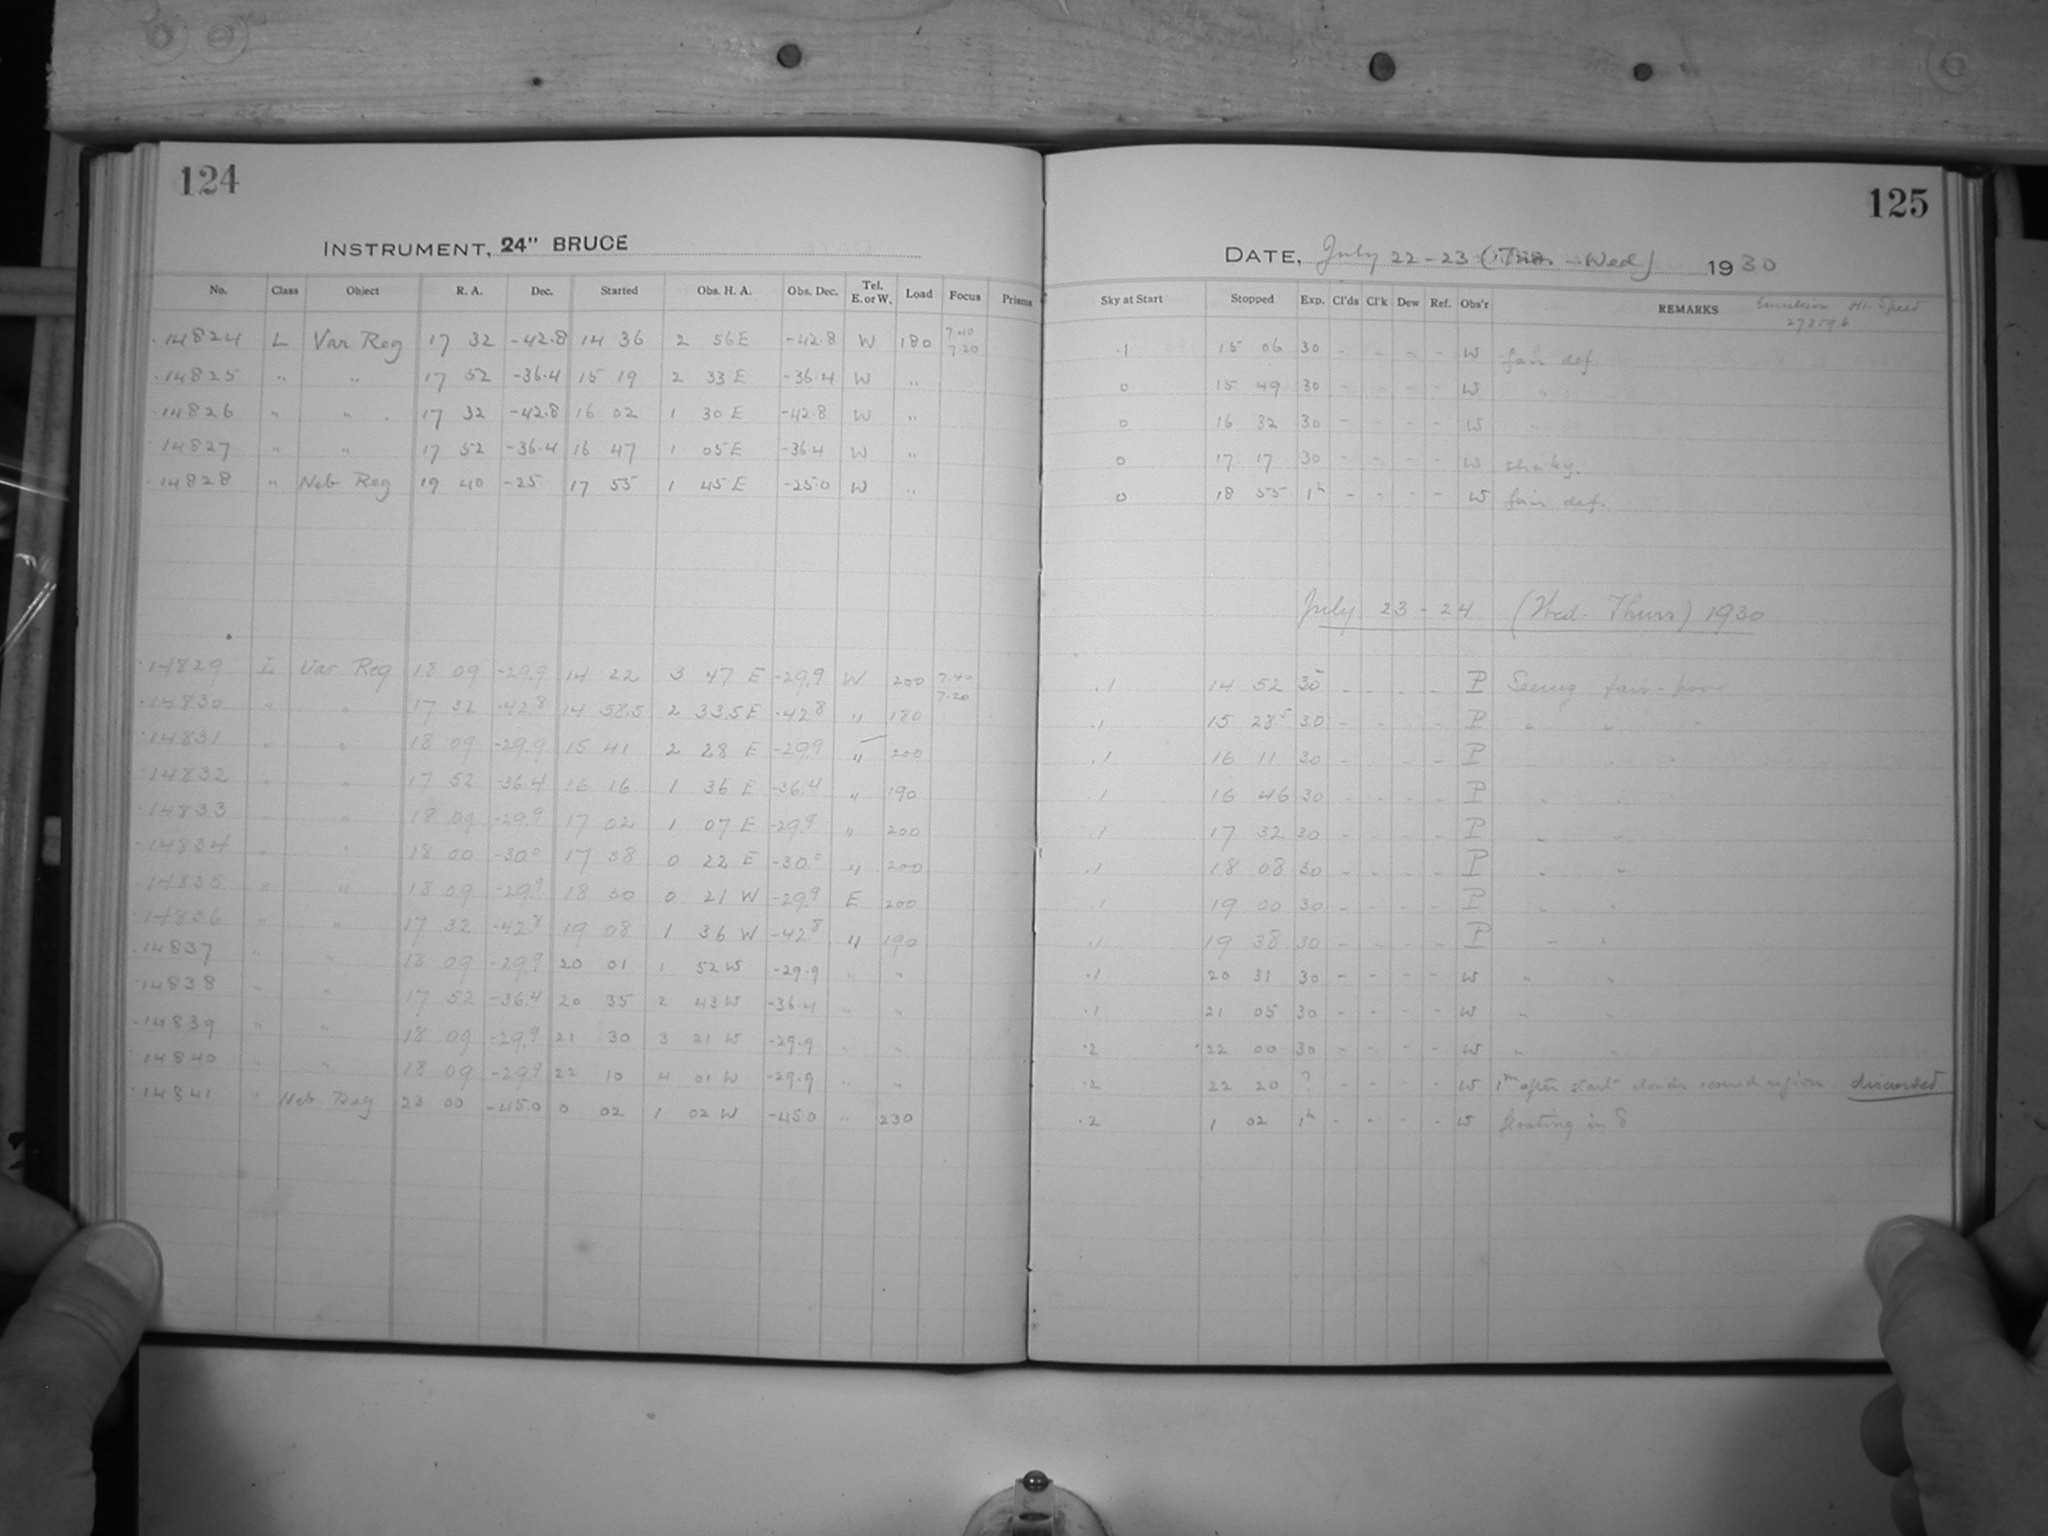 124
INSTRUMENT, 24" BRUCE
No. Class Object R. A. Dec. Started Obs. H. A. Obs. Dec. Tel. E. or W. Load Focus Prisms
14824 L Var Reg 17 32 -42.8 14 36 2 56 E -42.8 W 180 7.40 7.20
14825 " " 17 52 -36.4 15 19 2 33 E -36.4 W "
14826 " " 17 32 -42.8 16 02 1 30 E -42.8 W "
14827 " " 17 52 -36.4 16 47 1 05 E -36.4 W "
14828 " Neb Reg 19 40 -25 17 55 1 45 E -25.0 W "
14829 L Var Reg 18 09 -29.9 14 22 3 47 E -29.9 W 200 7.40 7.20
14830 " " 17 32 -42.8 14 58.5 2 33.5 E -42.8 " 180
14831 " " 18 09 -29.9 15 41 2 28 E -29.9 " 200
14832 " " 17 52 -36.4 16 16 1 36 E -36.4 " 190
14833 " " 18 09 -29.9 17 02 1 07 E -29.9 " 200
14834 " " 18 00 -30.0 17 38 0 22 E -30.0 " 200
14835 " " 18 09 -29.9 18 30 0 21 W -29.9 E 200
14836 " " 17 32 -42.8 19 08 1 36 W -42.8 " 190
14837 " " 18 09 -29.9 20 01 1 52 W -29.9 " "
14838 " " 17 52 -36.4 20 35 2 43 W -36.4 " "
14839 " " 18 09 -29.9 21 30 3 21 W -29.9 " "
14840 " " 18 09 -29.9 22 10 4 01 W -29.9 " "
14841 " Neb Reg 23 00 -45.0 0 02 1 02 W -45.0 " 230
125
DATE, July 22-23 (Tues - Wed) 1930
Sky at Start Stopped Exp. Cl'ds Cl'k Dew Ref. Obs'r REMARKS Emulsion Hi-Speed
.1 15 06 30 - - - - W fair def.
0 15 49 30 - - - - W "
0 16 32 30 - - - - W "
0 17 17 30 - - - - W shaky.
0 18 55 1h - - - - W fair def.
July 23-24 (Wed-Thurs) 1930
.1 14 52 30 - - - - P Seeing fair-poor
.1 15 28.5 30 - - - - P " " "
.1 16 11 30 - - - - P " "
.1 16 46 30 - - - - P " "
.1 17 32 30 - - - - P " "
.1 18 08 30 - - - - P " "
.1 19 00 30 - - - - P " "
.1 19 38 30 - - - - P " "
.1 20 31 30 - - - - W " "
.1 21 05 30 - - - - W " "
.2 22 00 30 - - - - W " "
.2 22 20 ? - - - - W 1m after start clouds covered region. discarded
.2 1 02 1h - - - - W floating in δ